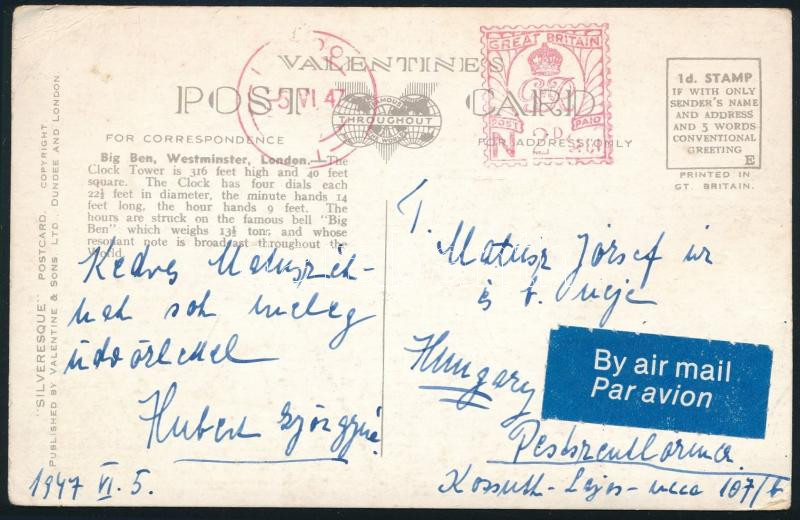 VALENTINE'S
POST CARD
"FAMOUS THROUGHOUT THE WORLD"
FOR CORRESPONDENCE
FOR ADDRESS ONLY
LONDON
5 VI 47
GREAT BRITAIN
POST PAID
N 2D
1d. STAMP
IF WITH ONLY
SENDER'S NAME
AND ADDRESS
AND 5 WORDS
CONVENTIONAL
GREETING
E
PRINTED IN
GT. BRITAIN.
"SILVERESQUE" POSTCARD. COPYRIGHT
PUBLISHED BY VALENTINE & SONS LTD. DUNDEE AND LONDON.
Big Ben, Westminster, London.—The
Clock Tower is 316 feet high and 40 feet
square. The Clock has four dials each
22½ feet in diameter, the minute hands 14
feet long, the hour hands 9 feet. The
hours are struck on the famous bell "Big
Ben" which weighs 13½ tons; and whose
resonant note is broadcast throughout the
World.
Kedves Matuszék-
nak sok meleg
üdvözlettel
Hubert Györgyné
1947 VI. 5.
T.
Matusz József úr
és b. neje
Hungary
Pestszentlőrinc
Kossuth-Lajos-utca 107/b
By air mail
Par avion